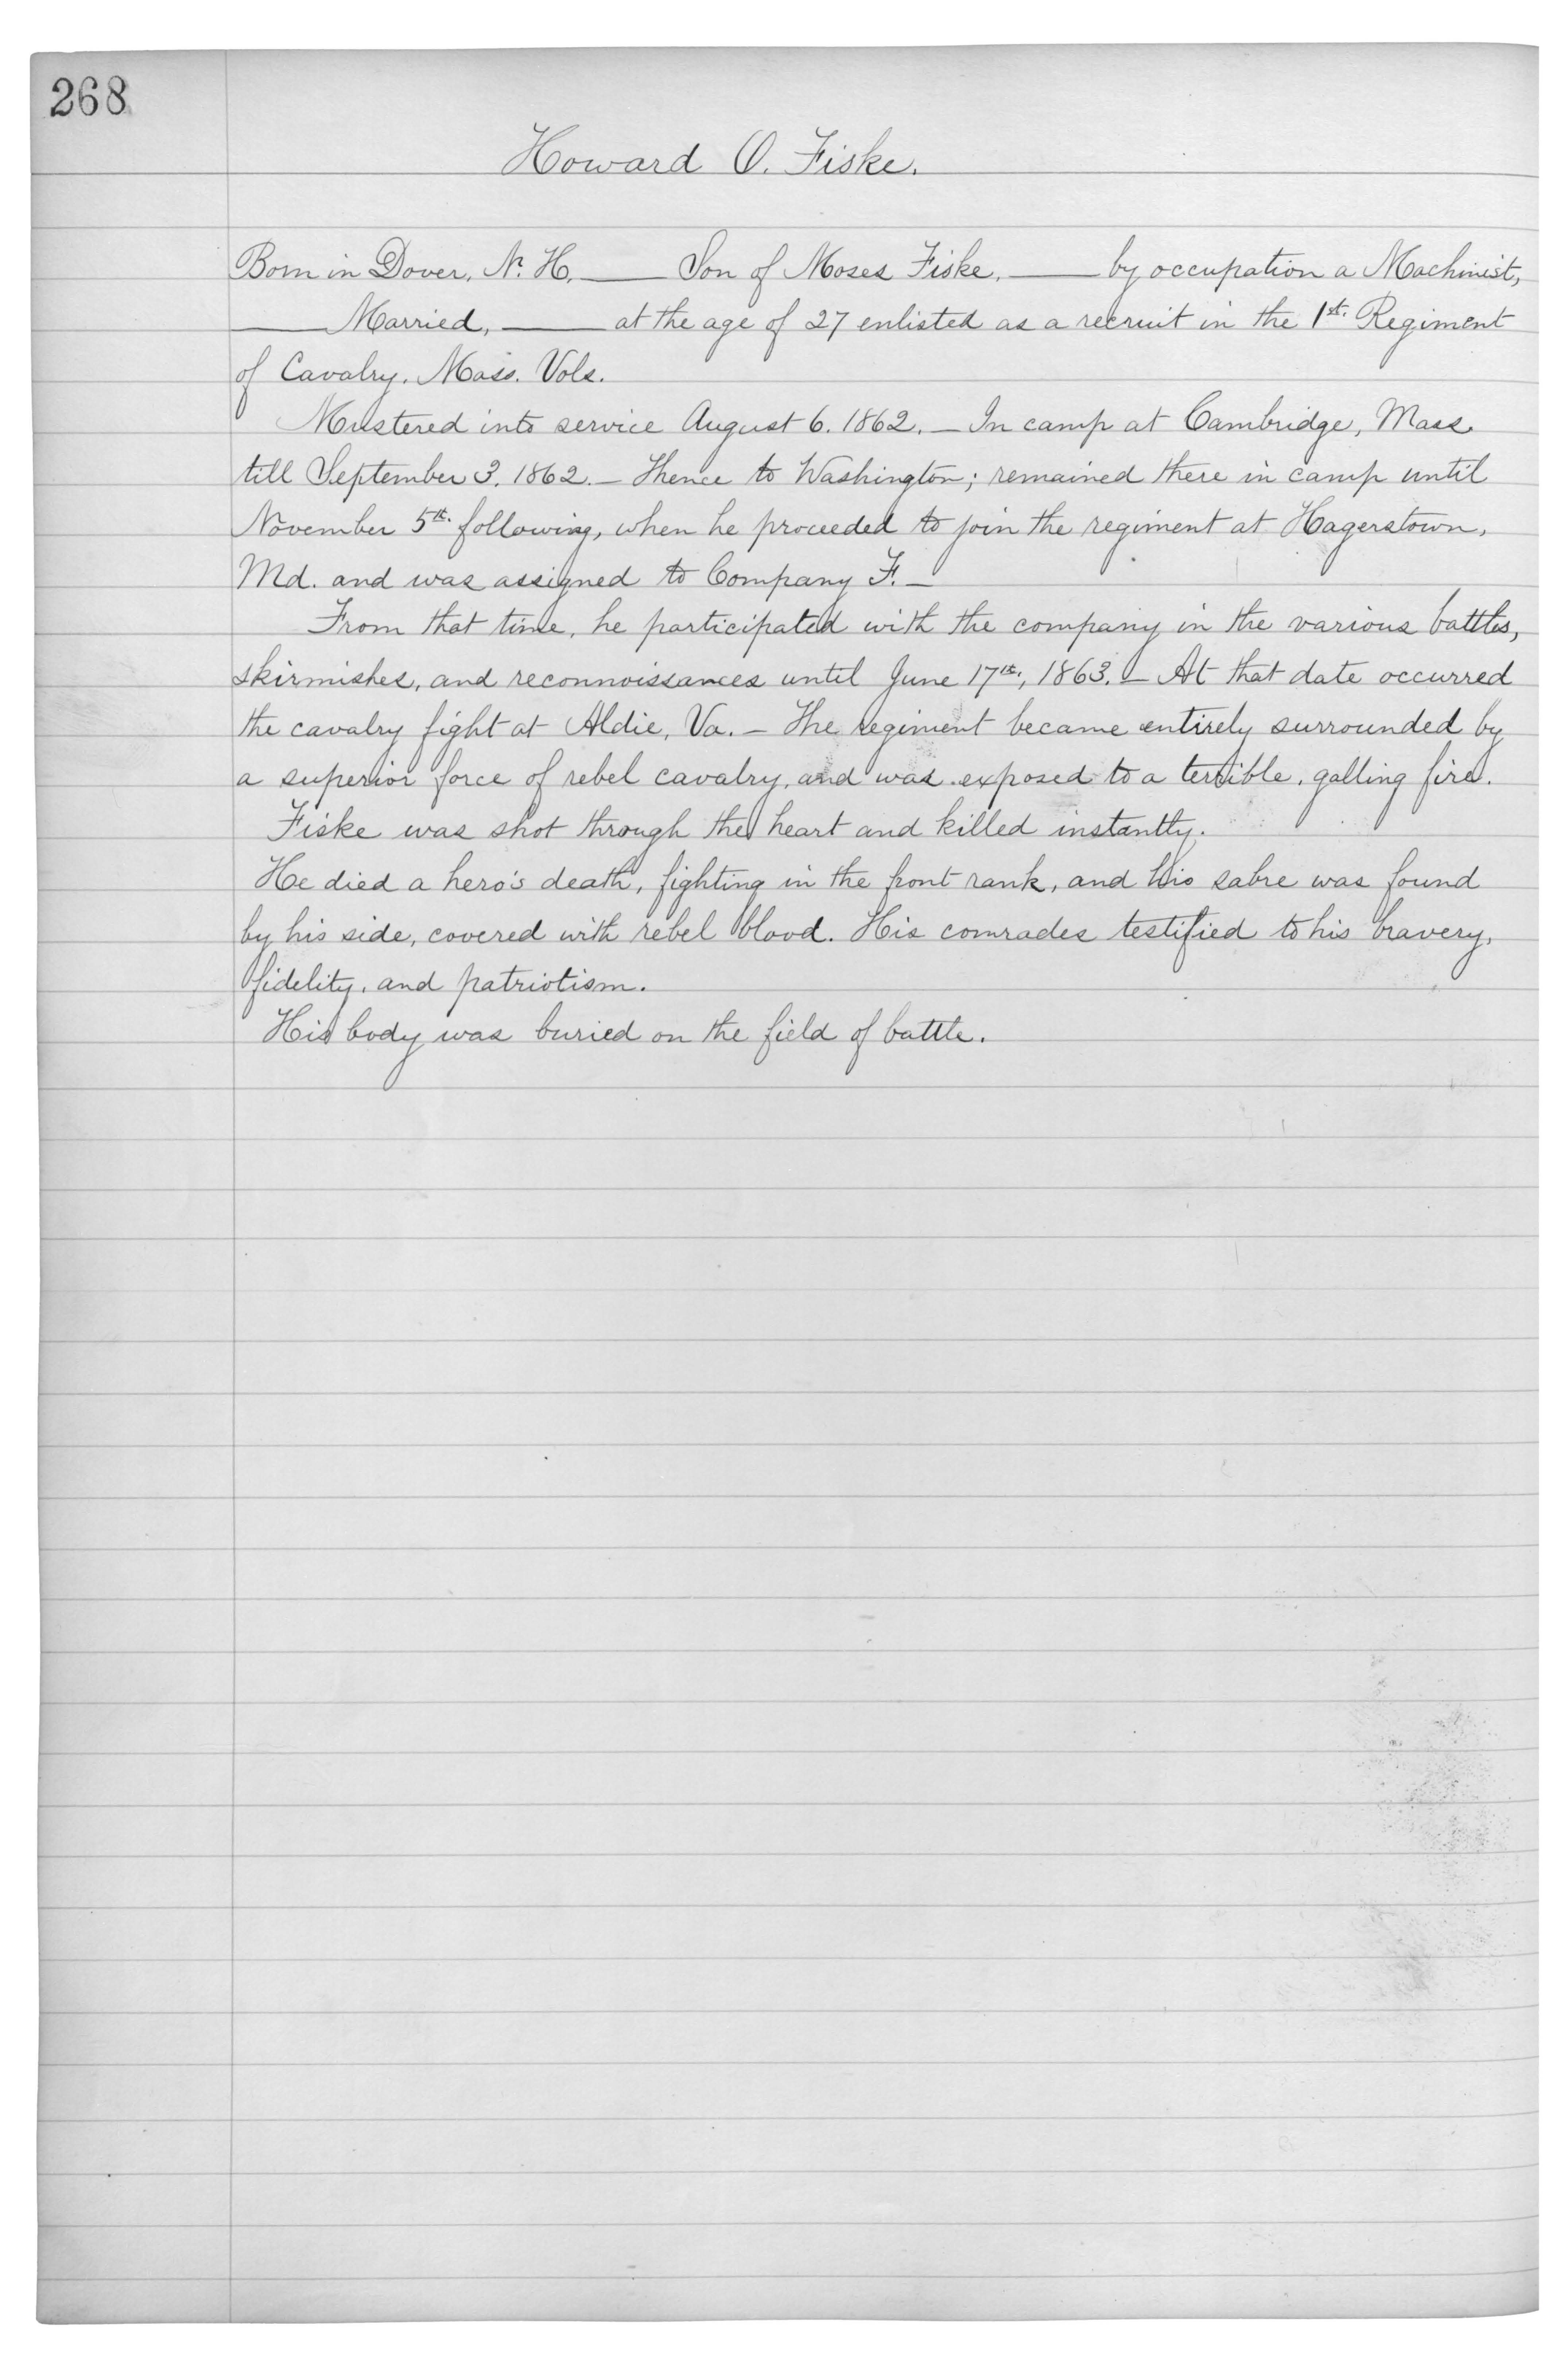 268
Howard O. Fiske.
Born in Dover, N. H. —— Son of Moses Fiske, —— by occupation a Machinist,
—— Married, —— at the age of 27 enlisted as a recruit in the 1st. Regiment
of Cavalry. Mass. Vols.
Mustered into service August 6. 1862. — In camp at Cambridge, Mass.
till September 3. 1862. — Thence to Washington; remained there in camp until
November 5th. following, when he proceeded to join the regiment at Hagerstown,
Md. and was assigned to Company F. —
From that time, he participated with the company in the various battles,
skirmishes, and reconnoissances until June 17th., 1863. — At that date occurred
the cavalry fight at Aldie, Va. — The regiment became entirely surrounded by
a superior force of rebel cavalry, and was exposed to a terrible, galling fire.
Fiske was shot through the heart and killed instantly.
He died a hero's death, fighting in the front rank, and his sabre was found
by his side, covered with rebel blood. His comrades testified to his bravery,
fidelity, and patriotism.
His body was buried on the field of battle.